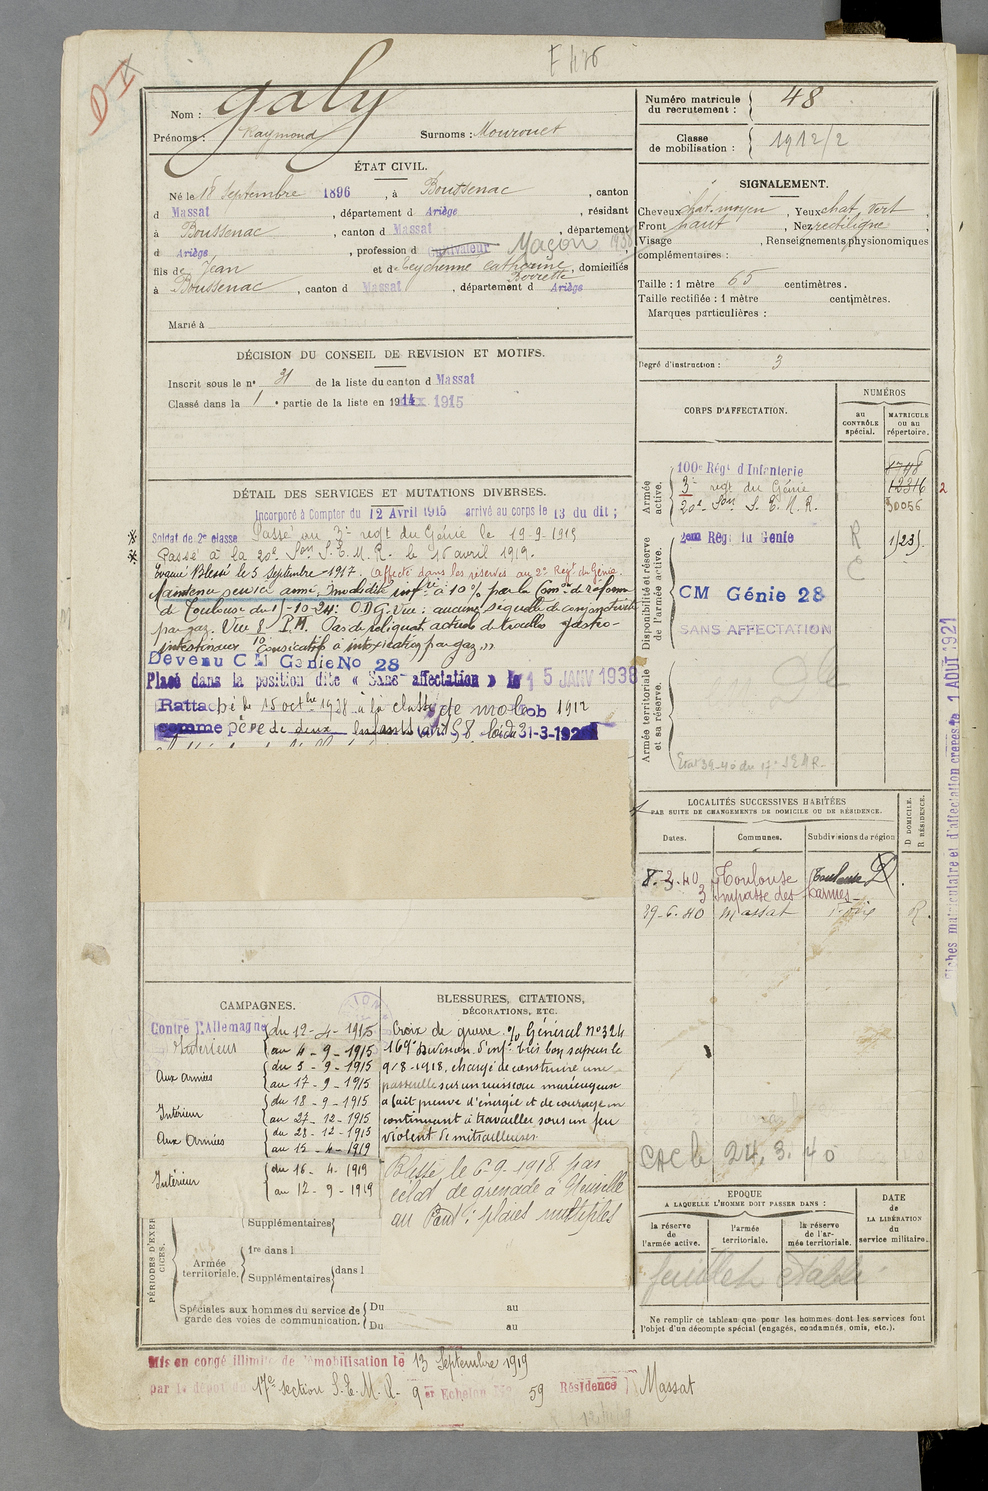 F 476
D X
Nom : Galy
Prénoms : Raymond Surnoms : Mourouet
ÉTAT CIVIL.
Né le 18 Septembre 1896 , à Boussenac , canton
d Massat , département d Ariège , résidant
à Boussenac , canton d Massat , département
d Ariège , profession d cultivateur Maçon 1938
fils de Jean et de Eychenne Catherine , domiciliés
à Boussenac , canton d Massat , département d Ariège
Marié à
DÉCISION DU CONSEIL DE REVISION ET MOTIFS.
Inscrit sous le n° 31 de la liste du canton d Massat
Classé dans la 1 e partie de la liste en 1914 1915
DÉTAIL DES SERVICES ET MUTATIONS DIVERSES.
Incorporé à Compter du 12 Avril 1915 arrivé au corps le 13 du dit ;
Soldat de 2e classe Passé au 3e regt du Génie le 19-9-1915
Passé à la 20e Son S.E.M.R. le 16 avril 1919.
Evacué Blessé le 5 Septembre 1917. Affecté dans les réserves au 2e Régt du Génie.
Maintenu service armé, Invalidité infre à 10% par la Comon de réforme
de Toulouse du 1-10-24: O.D.G. Vue : aucune séquelle de conjonctivite
par gaz. Vue 8/10 P.M. Pas de reliquat actuel de troubles gastro-
intestinaux consécutifs à intoxication par gaz. »
Devenu C M Génie No 28
Placé dans la position dite « Sans affectation » le 15 JANV 1938
Rattaché le 15 octbre 1938 à la classe de mob 1912
comme père de deux enfants art 58 loi du 31-3-1928
CAMPAGNES.
Contre l'Allemagne
Intérieur { du 12-4-1915
au 4-9-1915
Aux armées { du 5-9-1915
au 17-9-1915
Intérieur { du 18-9-1915
au 27-12-1915
Aux Armées { du 28-12-1915
au 15-4-1919
Intérieur { du 16-4-1919
au 12-9-1919
BLESSURES, CITATIONS,
DÉCORATIONS, ETC.
Croix de guerre. O/ Général n° 324
169e Division d'infie très bon sapeur le
9/8-1918, chargé de construire une
passerelle sur un ruisseau marécageux
a fait preuve d'énergie et de courage en
continuant à travailler sous un feu
violent de mitrailleuses
Blessé le 6-9-1918 par
éclat de grenade à
au : plaies multiples
PÉRIODES D'EXERCICES.
Supplémentaires
Armée territoriale.
1re dans l
Supplémentaires dans l
Spéciales aux hommes du service de garde des voies de communication.
Du au
Du au
Mis en congé illimité de démobilisation le 13 Septembre 1919
par le dépôt du 17e section S.E.M.R. 9er Echelon No 59 Résidence Massat
Numéro matricule du recrutement : 48
Classe de mobilisation : 1912/2
SIGNALEMENT.
Cheveux chat. moyen , Yeux chat. vert
Front haut , Nez rectiligne
Visage , Renseignements physionomiques
complémentaires :
Taille : 1 mètre 65 centimètres.
Taille rectifiée : 1 mètre centimètres.
Marques particulières :
Degré d'instruction : 3
CORPS D'AFFECTATION.
NUMÉROS
au CONTRÔLE spécial.
MATRICULE ou au répertoire.
Armée active.
100e Régt d'Infanterie
3e regt du Génie 12316
20e Son S.E.M.R. 50056
2
Disponibilité et réserve de l'armée active.
2em Régt du Génie
R
C
CM Génie 28
SANS AFFECTATION
Armée territoriale et sa réserve.
LOCALITÉS SUCCESSIVES HABITÉES
PAR SUITE DE CHANGEMENTS DE DOMICILE OU DE RÉSIDENCE.
Dates. Communes. Subdivisions de région
D DOMICILE.
R RÉSIDENCE.
8.3.40 Toulouse Toulouse D
3 Impasse des Carmes
29-6-40 Massat Foix R.
CAC le 24.3.40
EPOQUE
A LAQUELLE L'HOMME DOIT PASSER DANS :
la réserve de l'armée active.
l'armée territoriale.
la réserve de l'armée territoriale.
DATE de LA LIBÉRATION du service militaire.
feuillet établi
Ne remplir ce tableau que pour les hommes dont les services font
l'objet d'un décompte spécial (engagés, condamnés, omis, etc.).
Fiches matriculaire et d'affectation créées le 1 AOUT 1921